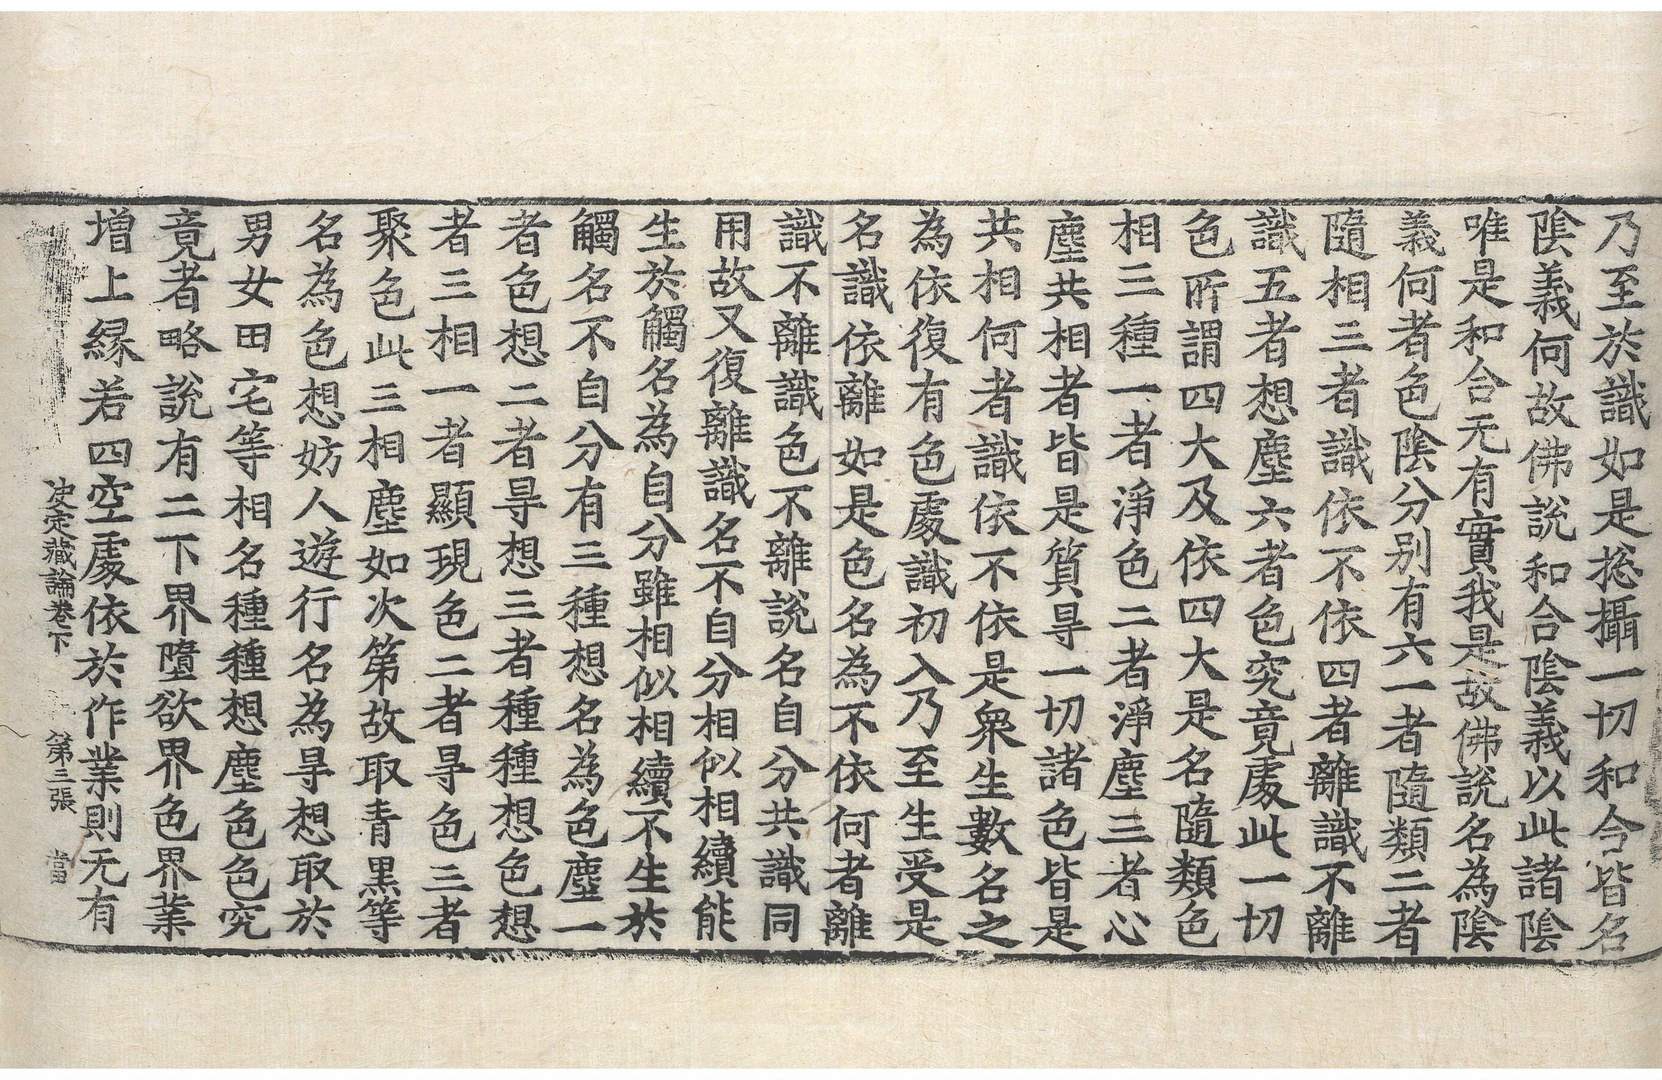 乃至於識如是捴攝一切和合皆名
陰義何故佛說和合陰義以此諸陰
唯是和合无有實我是故佛說名為陰
義何者色陰分别有六一者隨類二者
隨相三者識依不依四者離識不離
識五者想塵六者色究竟處此一切
色所謂四大及依四大是名隨類色
相三種一者淨色二者淨塵三者心
塵共相者皆是質㝵一切諸色皆是
共相何者識依不依是衆生數名之
為依復有色處識初入乃至生受是
名識依離如是色名為不依何者離
識不離識色不離說名自分共識同
用故又復離識名不自分相似相續能
生於觸名為自分雖相似相續不生於
觸名不自分有三種想名為色塵一
者色想二者㝵想三者種種想色想
者三相一者顯現色二者㝵色三者
聚色此三相塵如次第故取青黑等
名為色想妨人遊行名為㝵想取於
男女田宅等相名種種想塵色色究
竟者略說有二下界墮欲界色界業
增上縁若四空處依於作業則无有
决定藏論卷下　第三張　當